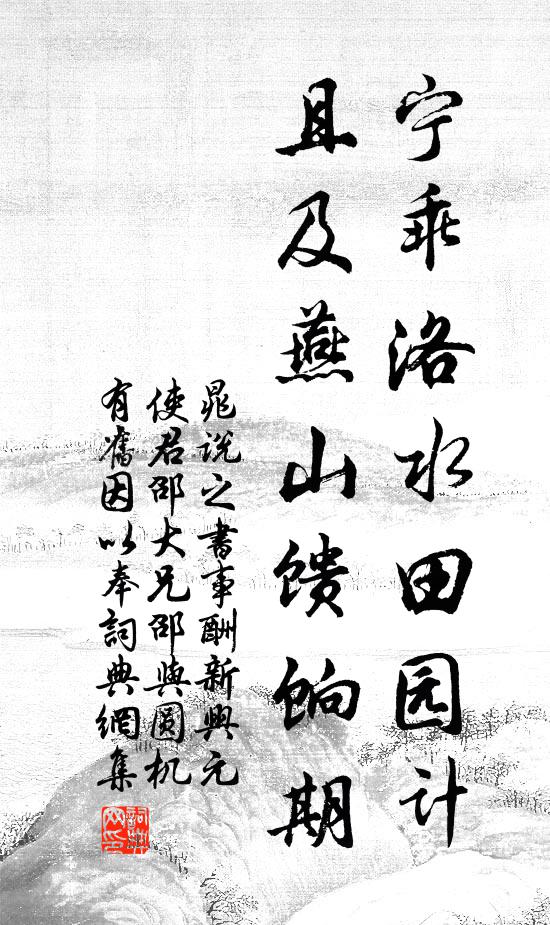 宁乖洛水田园计
且及燕山馈饷期
晁说之书事酬新興元
使君邵大兄邵與圆机
有舊因以奉詞典網集